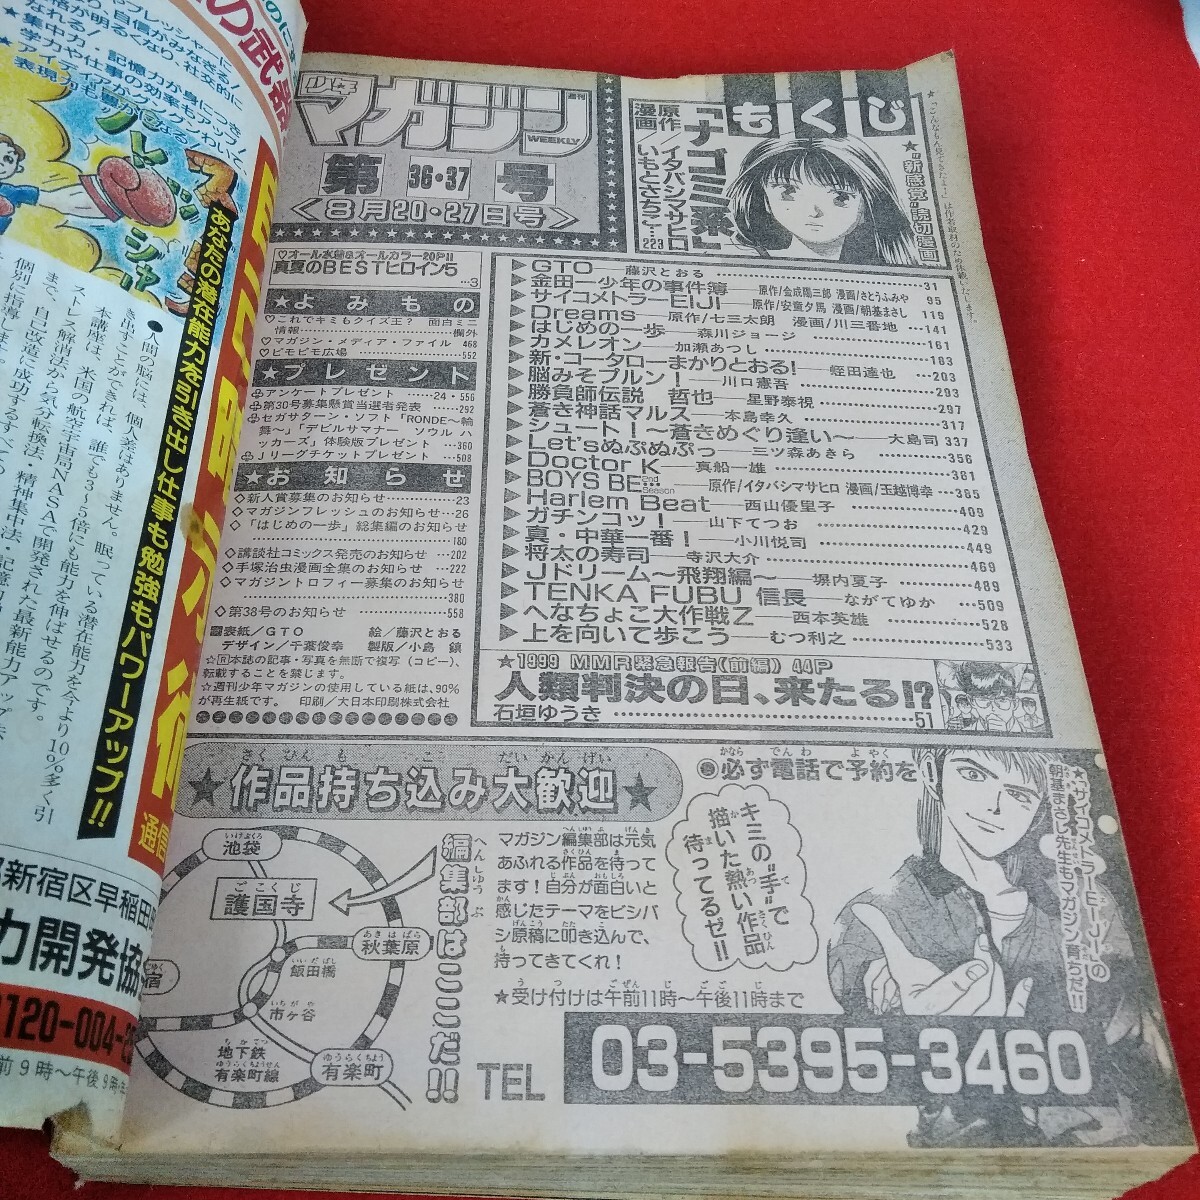 少年マガジン
週刊
WEEKLY
第36・37号
〈8月20・27日号〉
もくじ
“新感覚”読切漫画
『ナゴミ系』
原作/イタバシマサヒロ
漫画/いもとさち…223
♡オール水着のオールカラー20P!!
真夏のBESTヒロイン5 …3
★よみもの
♡これでキミもクイズ王? 面白ミニ情報…欄外
♡マガジン・メディア・ファイル 468
♡ピモピモ広場 …552
★プレゼント
♧アンケートプレゼント …24・556
♧第30号募集懸賞当選者発表 …292
♧セガサターン・ソフト「RONDE〜輪舞〜」「デビルサマナー ソウル ハッカーズ」体験版プレゼント …360
♧Jリーグチケットプレゼント …508
★お知らせ
◇新人賞募集のお知らせ …23
◇マガジンフレッシュのお知らせ …26
◇「はじめの一歩」総集編のお知らせ …180
◇講談社コミックス発売のお知らせ …202
◇手塚治虫漫画全集のお知らせ …222
◇マガジントロフィー募集のお知らせ …380
◇第38号のお知らせ …558
表紙/GTO 絵/藤沢とおる
デザイン/千葉俊幸 製版/小島 鎮
☆Ⓡ本誌の記事・写真を無断で複写(コピー)、転載することを禁じます。
☆週刊少年マガジンの使用している紙は、90%が再生紙です。 印刷/大日本印刷株式会社
▶GTO―藤沢とおる …31
▶金田一少年の事件簿―原作/金成陽三郎 漫画/さとうふみや …95
▶サイコメトラーEIJI―原作/安童夕馬 漫画/朝基まさし …119
▶Dreams―原作/七三太朗 漫画/川三番地 …141
▶はじめの一歩―森川ジョージ …161
▶カメレオン―加瀬あつし …183
▶新・コータローまかりとおる!―蛭田達也 …203
▶脳みそプルン!―川口憲吾 …293
▶勝負師伝説 哲也―星野泰視 …297
▶蒼き神話マルス―本島幸久 …317
▶シュート!〜蒼きめぐり逢い〜―大島司 337
▶Let'sぬぷぬぷっ―三ツ森あきら …356
▶Doctor K―真船一雄 …361
▶BOYS BE… 2nd Season―原作/イタバシマサヒロ 漫画/玉越博幸 …385
▶Harlem Beat―西山優里子 …409
▶ガチンコッ!―山下てつお …429
▶真・中華一番!―小川悦司 …449
▶将太の寿司―寺沢大介 …469
▶Jドリーム〜飛翔編〜―塀内夏子 …489
▶TENKA FUBU 信長―ながてゆか …509
▶へなちょこ大作戦Z―西本英雄 …528
▶上を向いて歩こう―むつ利之 …533
★1999 MMR緊急報告(前編) 44P
人類判決の日、来たる!?
石垣ゆうき …51
★作品持ち込み大歓迎★
さくひんもちこみだいかんげい
●必ず電話で予約を!
池袋
護国寺
秋葉原
飯田橋
市ヶ谷
地下鉄
有楽町線
有楽町
編集部はここだ!!
マガジン編集部は元気
あふれる作品を待って
ます!自分が面白いと
感じたテーマをビシバ
シ原稿に叩き込んで、
持ってきてくれ!
★受け付けは午前11時〜午後11時まで
キミの“手”で
描いた熱い作品
待ってるゼ!!
★『サイコメトラーEIJI』の
朝基まさし先生もマガジン育ちだ!!
TEL 03-5395-3460
の武器
★集中力・記憶力が身につき
学力や仕事の効率もアップ!
あなたの潜在能力を引き出し仕事も勉強もパワーアップ!!
●人間の脳には、個人差はありません。眠っている潜在能力を今より10%多く引
き出すことができれば、誰でも3〜5倍にも能力を伸ばせるのです。
本講座は、米国の航空宇宙局NASAで開発された最新能力アップ
通信
新宿区早稲田
力開発協
0120-004-2
前9時〜午後9時